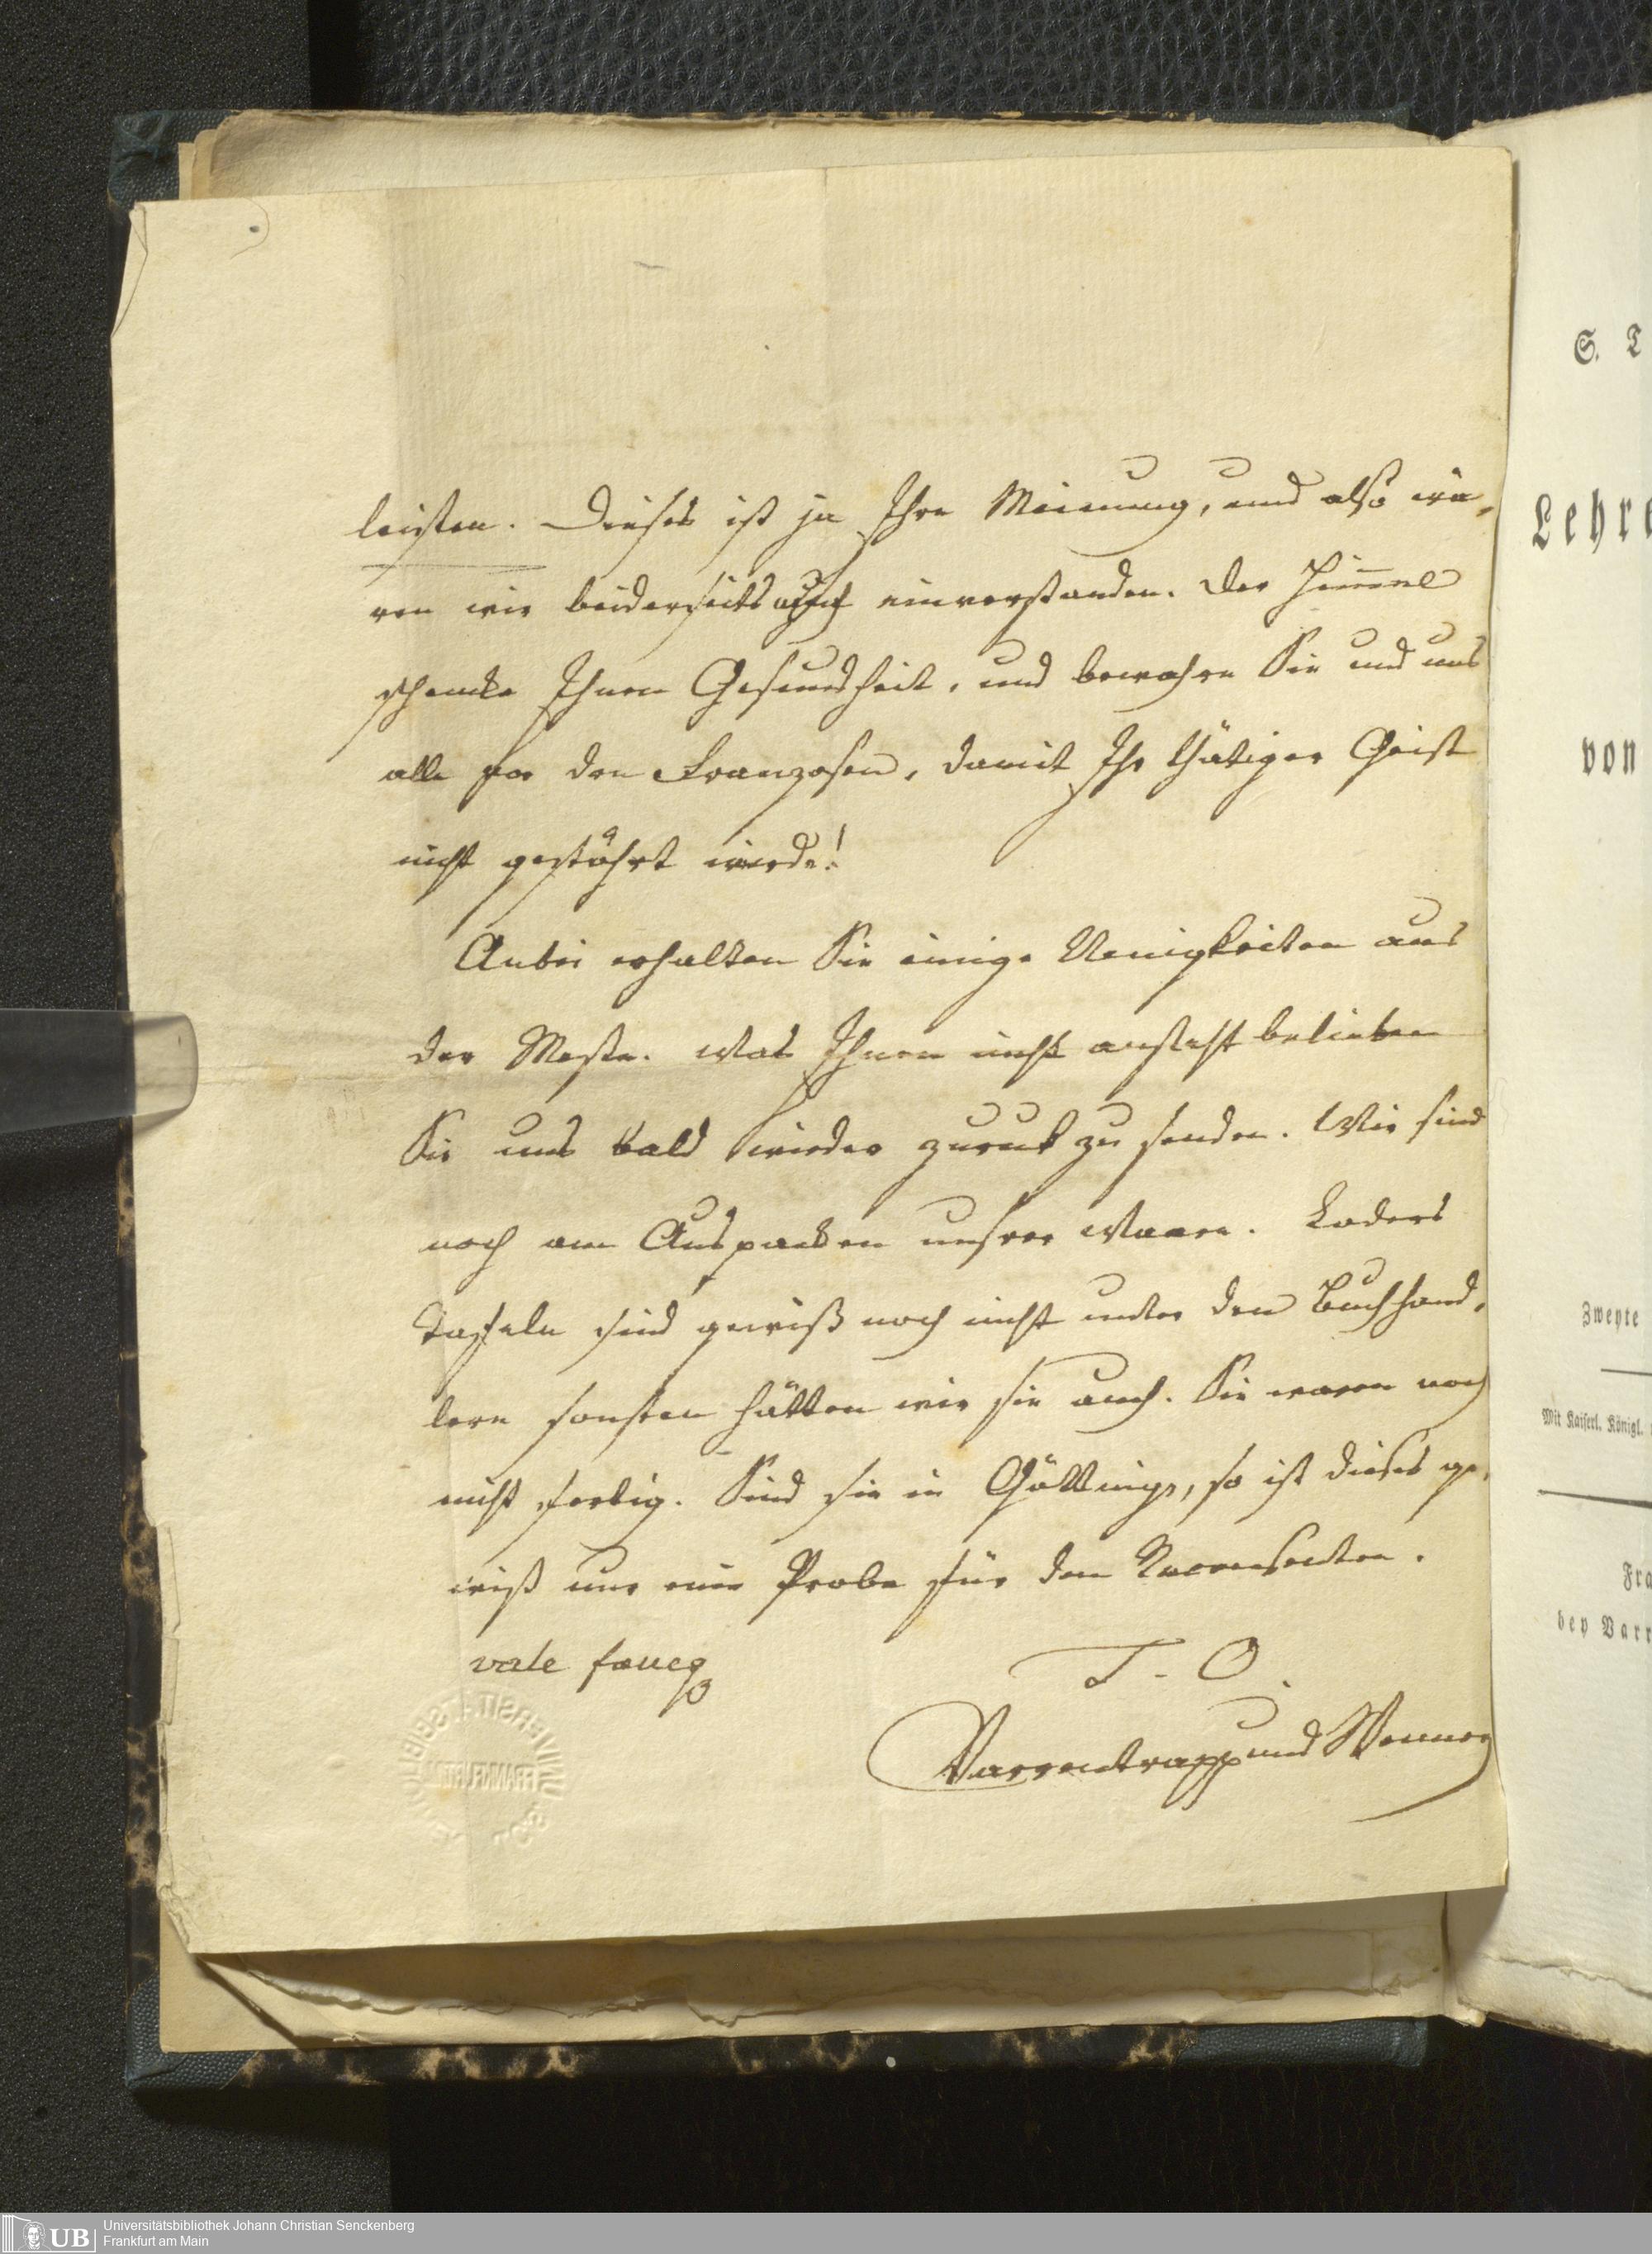 leisten. Dieses ist ja Ihre Meinung, und also wä-
ren wir beiderseits auch einverstanden. Der Himmel
schenke Ihnen Gesundheit, und bewahre Sie und uns
alle vor den Franzosen, damit Ihr thätiger Geist
nicht gestöhrt werde!
Anbei erhalten Sie einige Neuigkeiten aus
der Messe. Was Ihnen nicht ansteht belieben
Sie uns bald wieder zuruk zu senden. Wir sind
noch am Auspacken unsrer Waare. Loders
Tafeln sind gewiß noch nicht unter den Buchhänd-
lern sonsten hätten wir sie auch. Sie waren noch
nicht fertig. Sind sie in Götting, so ist dieses ge-
wiß nur eine Probe für den Recensenten.
vale faveq
T. O.
Varrentrapp und Wenner
S. T
Lehre
von
Zweyte
Mit Kaiserl. Königl.
Fra
bey Varr
UB
Universitätsbibliothek Johann Christian Senckenberg
Frankfurt am Main